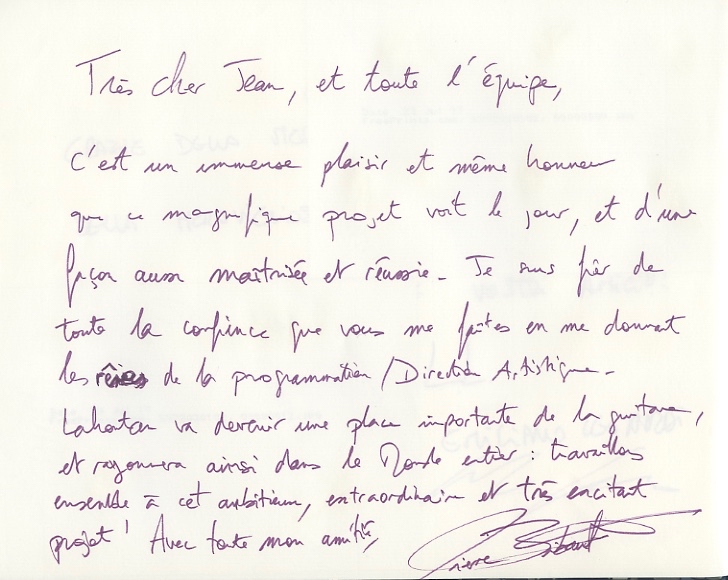 Très cher Jean, et toute l'équipe,
C'est un immense plaisir et même honneur
que ce magnifique projet voit le jour, et d'une
façon aussi maîtrisée et réussie - Je suis fier de
toute la confince que vous me faîtes en me donnant
les de la programmation / Direction Artistique -
Lahontan va devenir une place importante de la guitare,
et rayonnera ainsi dans le Monde entier : travaillons
ensemble à cet ambitieux, extraordinaire et très excitant
projet ! Avec toute mon amitié,
Pierre Bibault